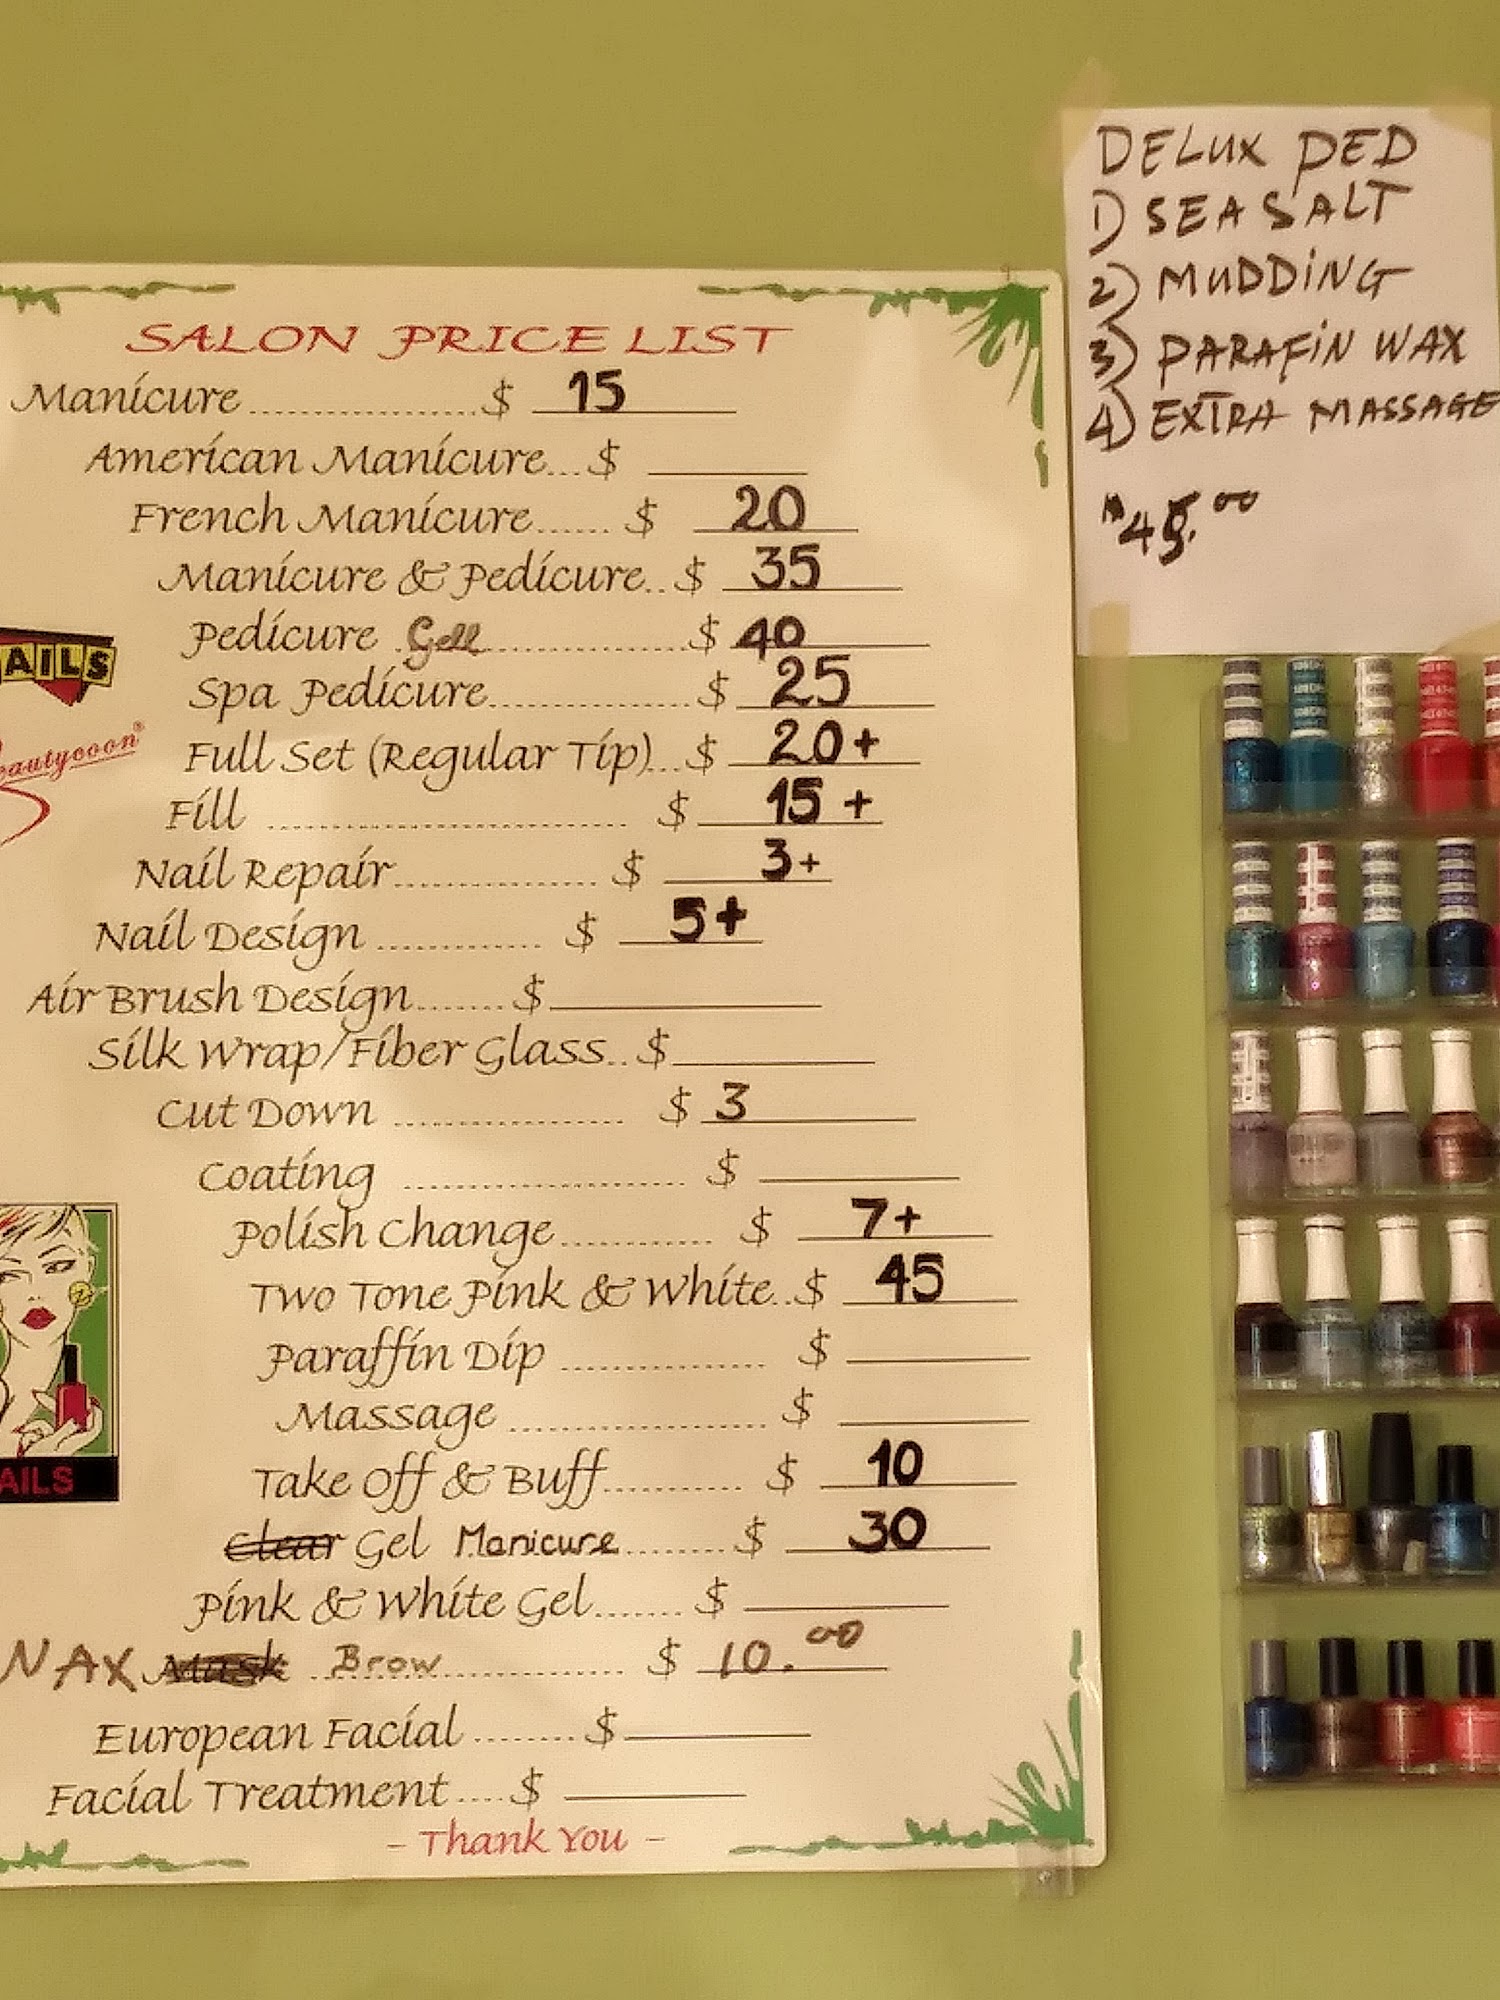 SALON PRICE LIST
Manicure........................$ 15
American Manicure...$
French Manicure...... $ 20
Manicure & Pedicure..$ 35
Pedicure Gell........................$ 40
Spa Pedicure......................$ 25
Full Set (Regular Tip)...$ 20+
Fill ........................................ $ 15 +
Nail Repair...................... $ 3+
Nail Design .................. $ 5+
Air Brush Design.......$
Silk Wrap/Fiber Glass..$
Cut Down ......................... $ 3
Coating ............................... $
Polish Change................. $ 7+
Two Tone Pink & White..$ 45
Paraffin Dip ....................... $
Massage ............................. $
Take Off & Buff............... $ 10
Clear Gel Manicure............. $ 30
Pink & White Gel....... $
WAX Mask Brow.................... $ 10.00
European Facial ........$
Facial Treatment ....$
- Thank You -
AILS
eautycoon®
AILS
DELUX PED
1) SEA SALT
2) MUDDING
3) PARAFIN WAX
4) EXTRA MASSAGE
$45.00